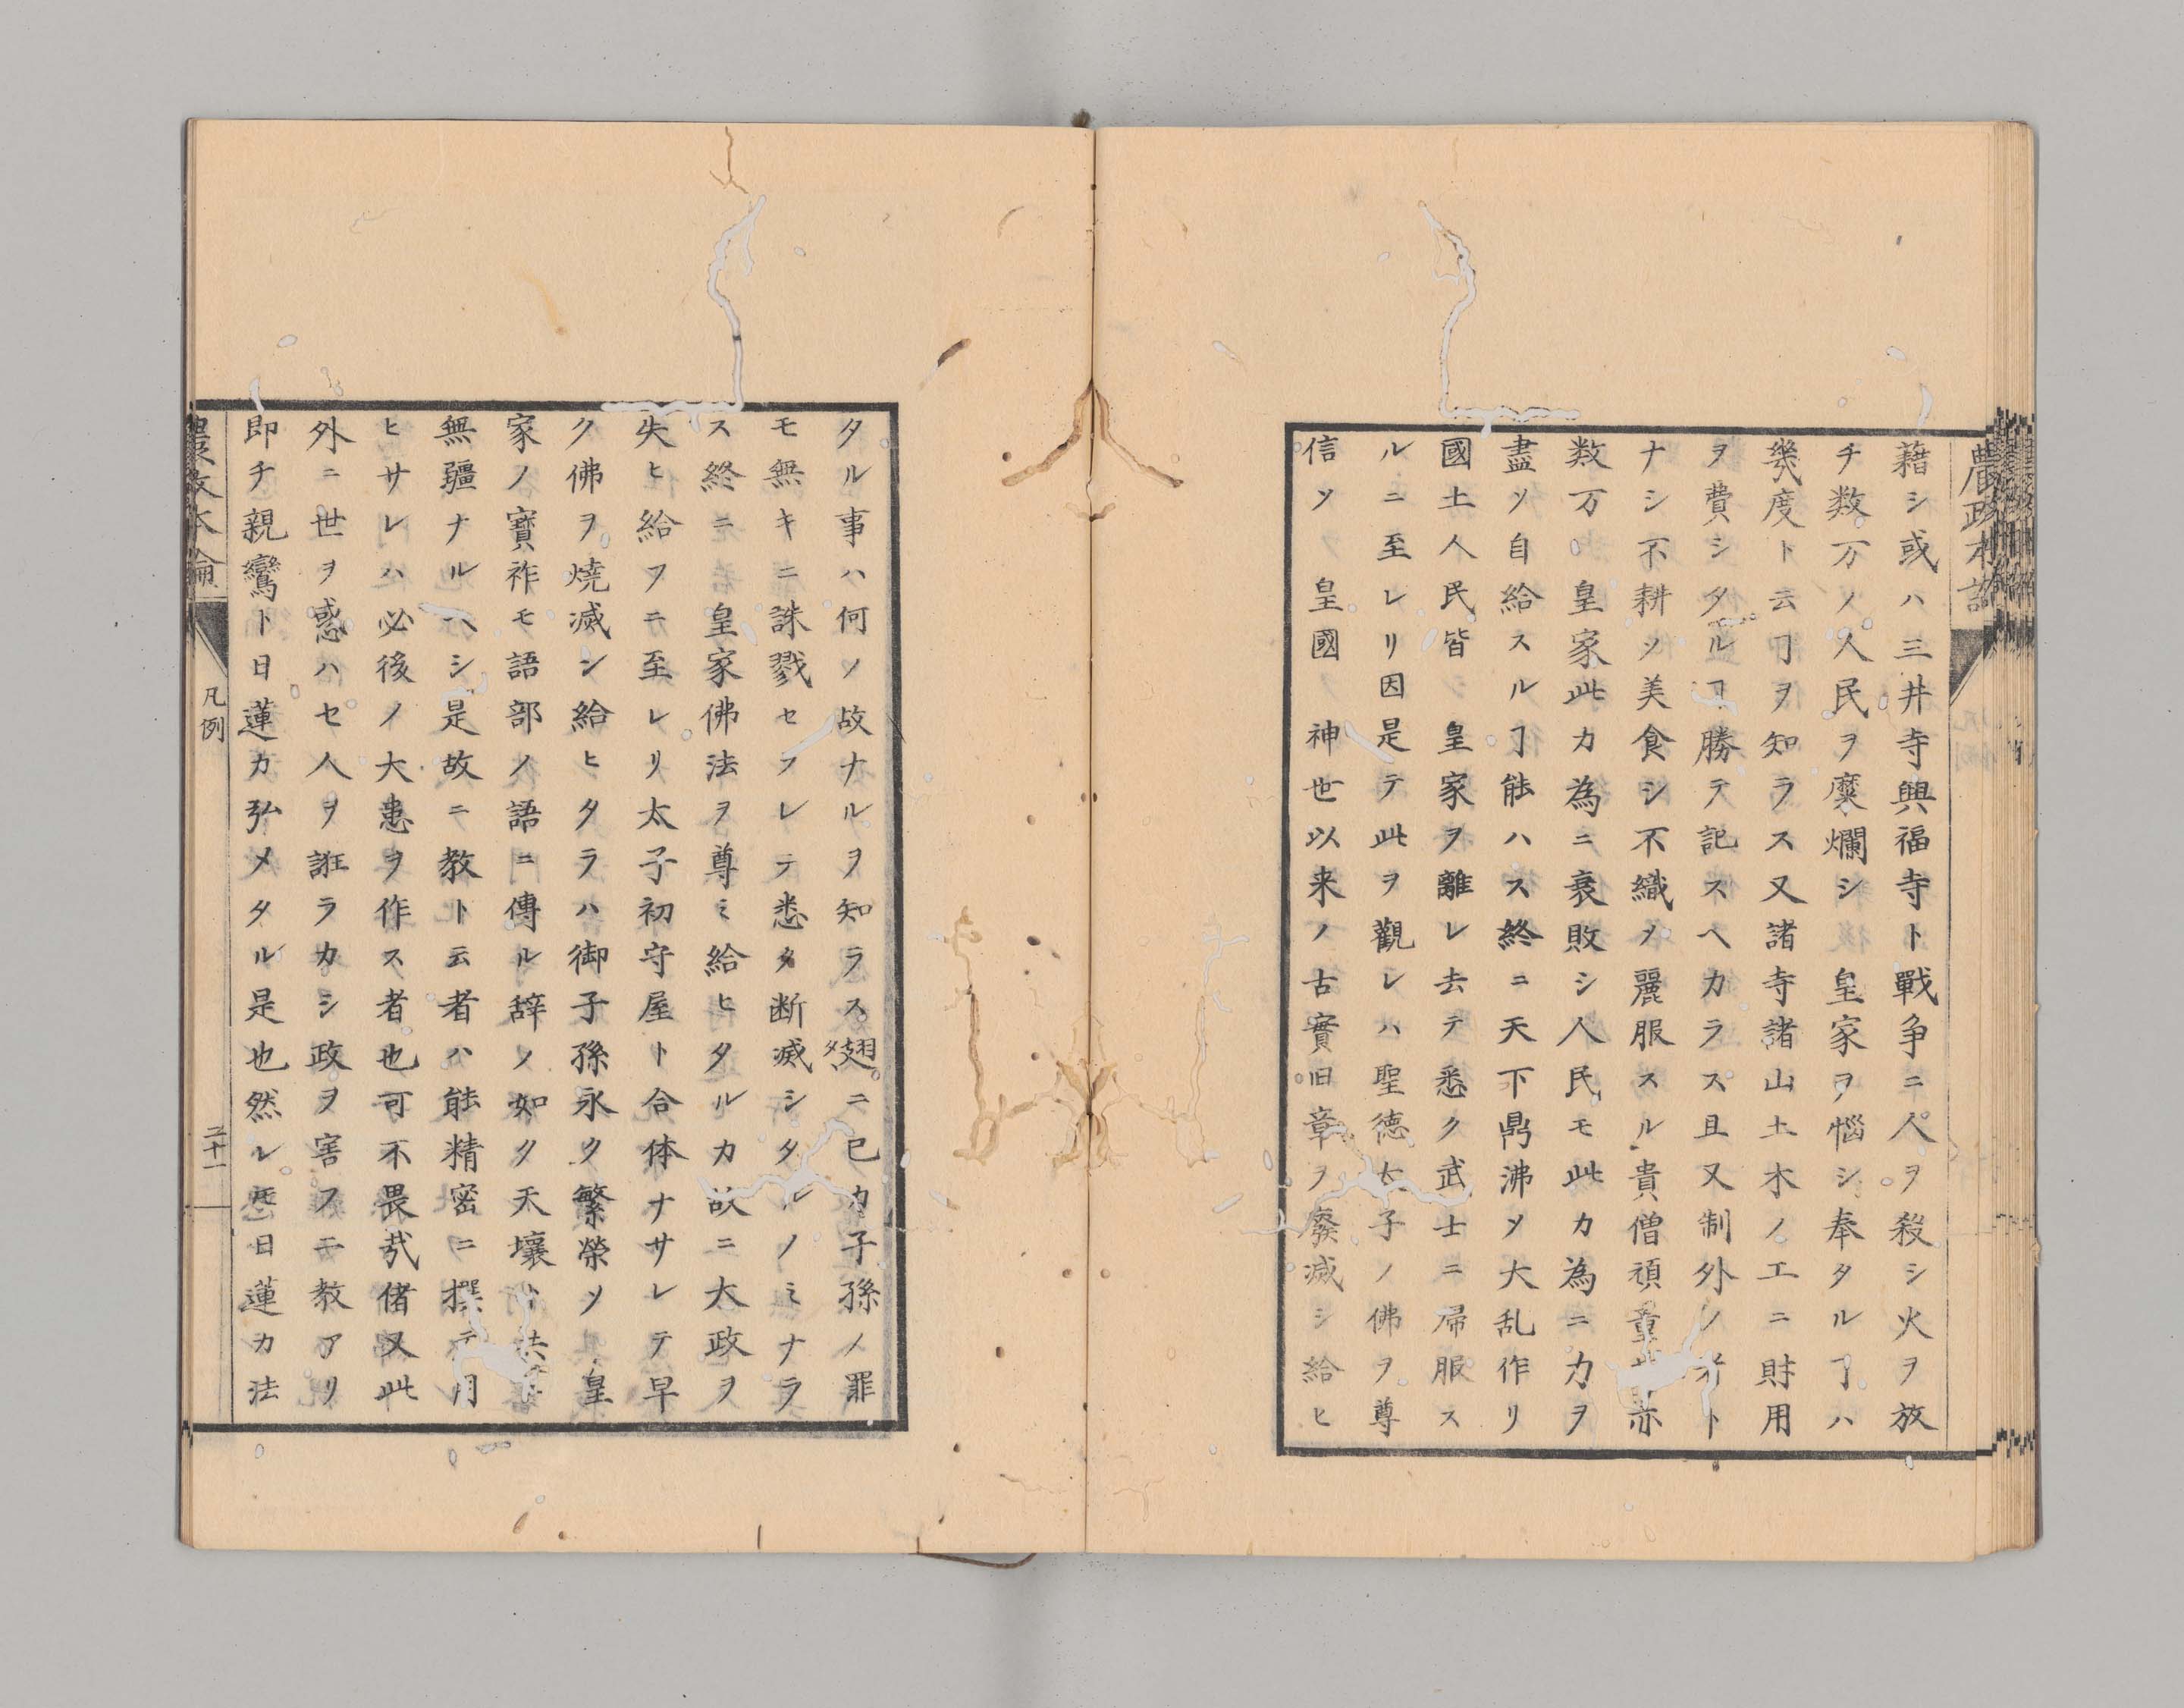 農政本論
藉シ或ハ三井寺興福寺ト戰争ニ人ヲ殺シ火ヲ放
チ数万ノ人民ヲ糜爛シ 皇家ヲ惱シ奉タルヿハ
幾度ト云ヿヲ知ラス又諸寺諸山土木ノ工ニ財用
ヲ費シタルヿ勝テ記スヘカラス且又制外ノ者ト
ナシ不耕ソ美食シ不織ソ麗服スル貴僧頑童亦
数万 皇家此カ為ニ衰敗シ人民モ此カ為ニ力ヲ
盡ソ自給スルヿ能ハス終ニ天下鼎沸ソ大乱作リ
國土人民皆 皇家ヲ離レ去テ悉ク武士ニ帰服ス
ルニ至レリ因是テ此ヲ觀レハ聖徳太子ノ佛ヲ尊
信ソ 皇國 神世以来ノ古實旧章ヲ廢滅シ給ヒ
タル事ハ何ノ故ナルヲ知ラス翅タニ已カ子孫ノ罪
モ無キニ誅戮セラレテ悉タ断滅シタルノミナラ
ス終ニ 皇家佛法ヲ尊ミ給ヒタルカ故ニ大政ヲ
失ヒ給フニ至レリ太子初守屋ト合体ナサレテ早
ク佛ヲ燒滅シ給ヒタラハ御子孫永ク繁榮ソ 皇
家ノ寳祚モ語部ノ語ニ傳ル辞ノ如タ天壤ト共ニ
無疆ナルヘシ是故ニ教ト云者ハ能精密ニ撰テ用
ヒサレハ必後ノ大患ヲ作ス者也可不畏哉偖又此
外ニ世ヲ惑ハセ人ヲ誑ラカシ政ヲ害フ二教アリ
即チ親鸞ト日蓮カ弘メタル是也然レ𪜈日蓮カ法
農政本論
凡例
二十一